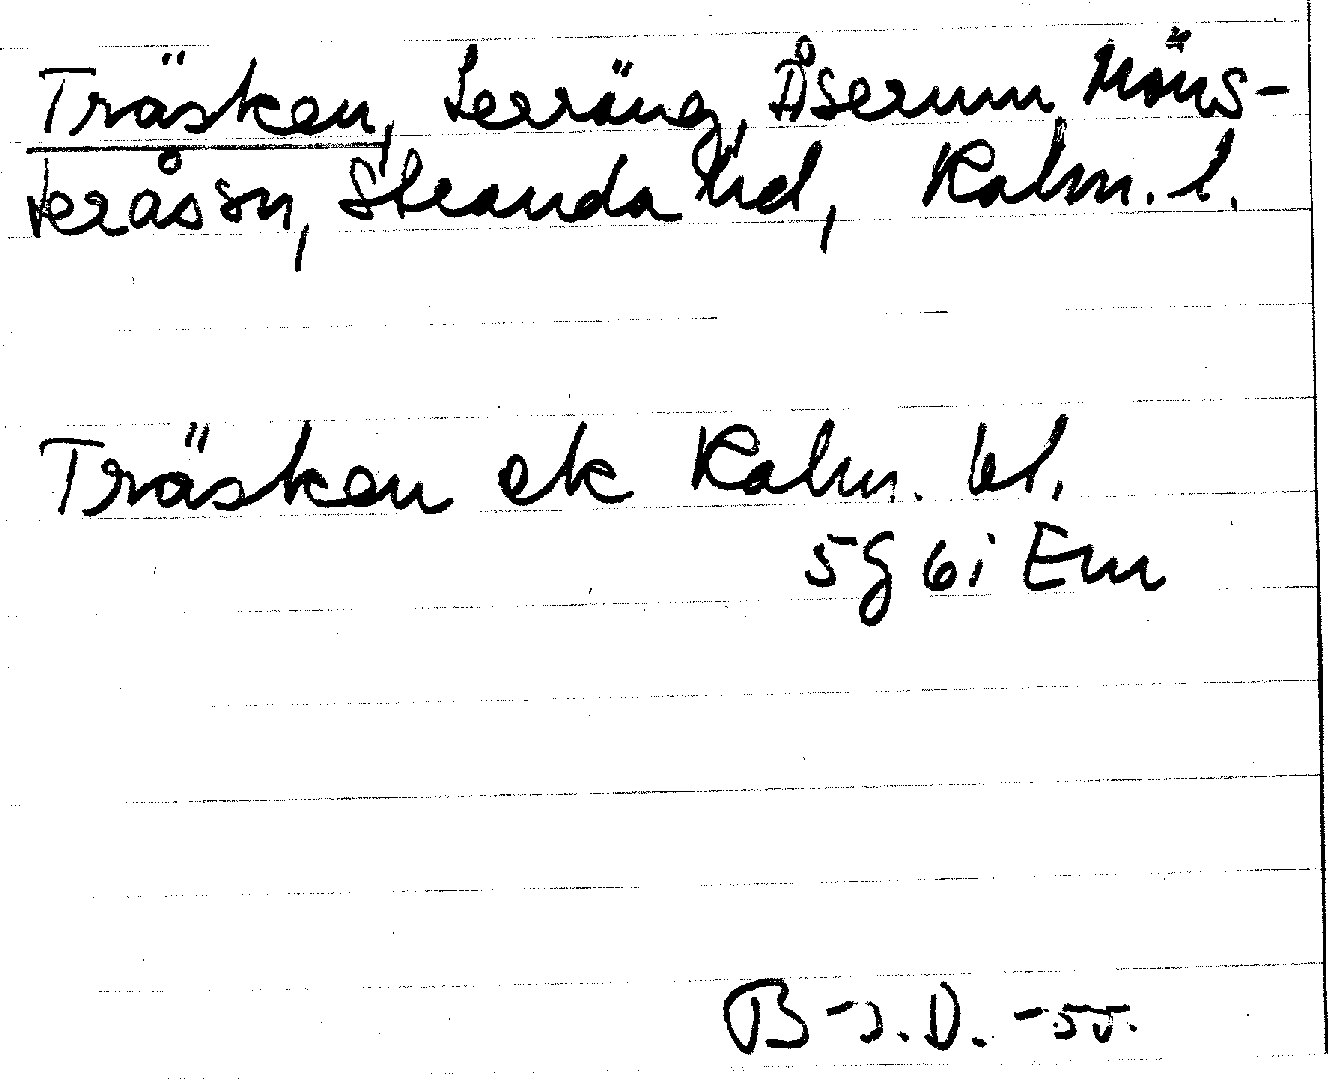 Träsken, terräng, Åserum, Möns-
teråssn, Stranda hd, Kalm. l.
Träsken ek Kalm. bl.
5g 6i Em
B-J.D. -55.